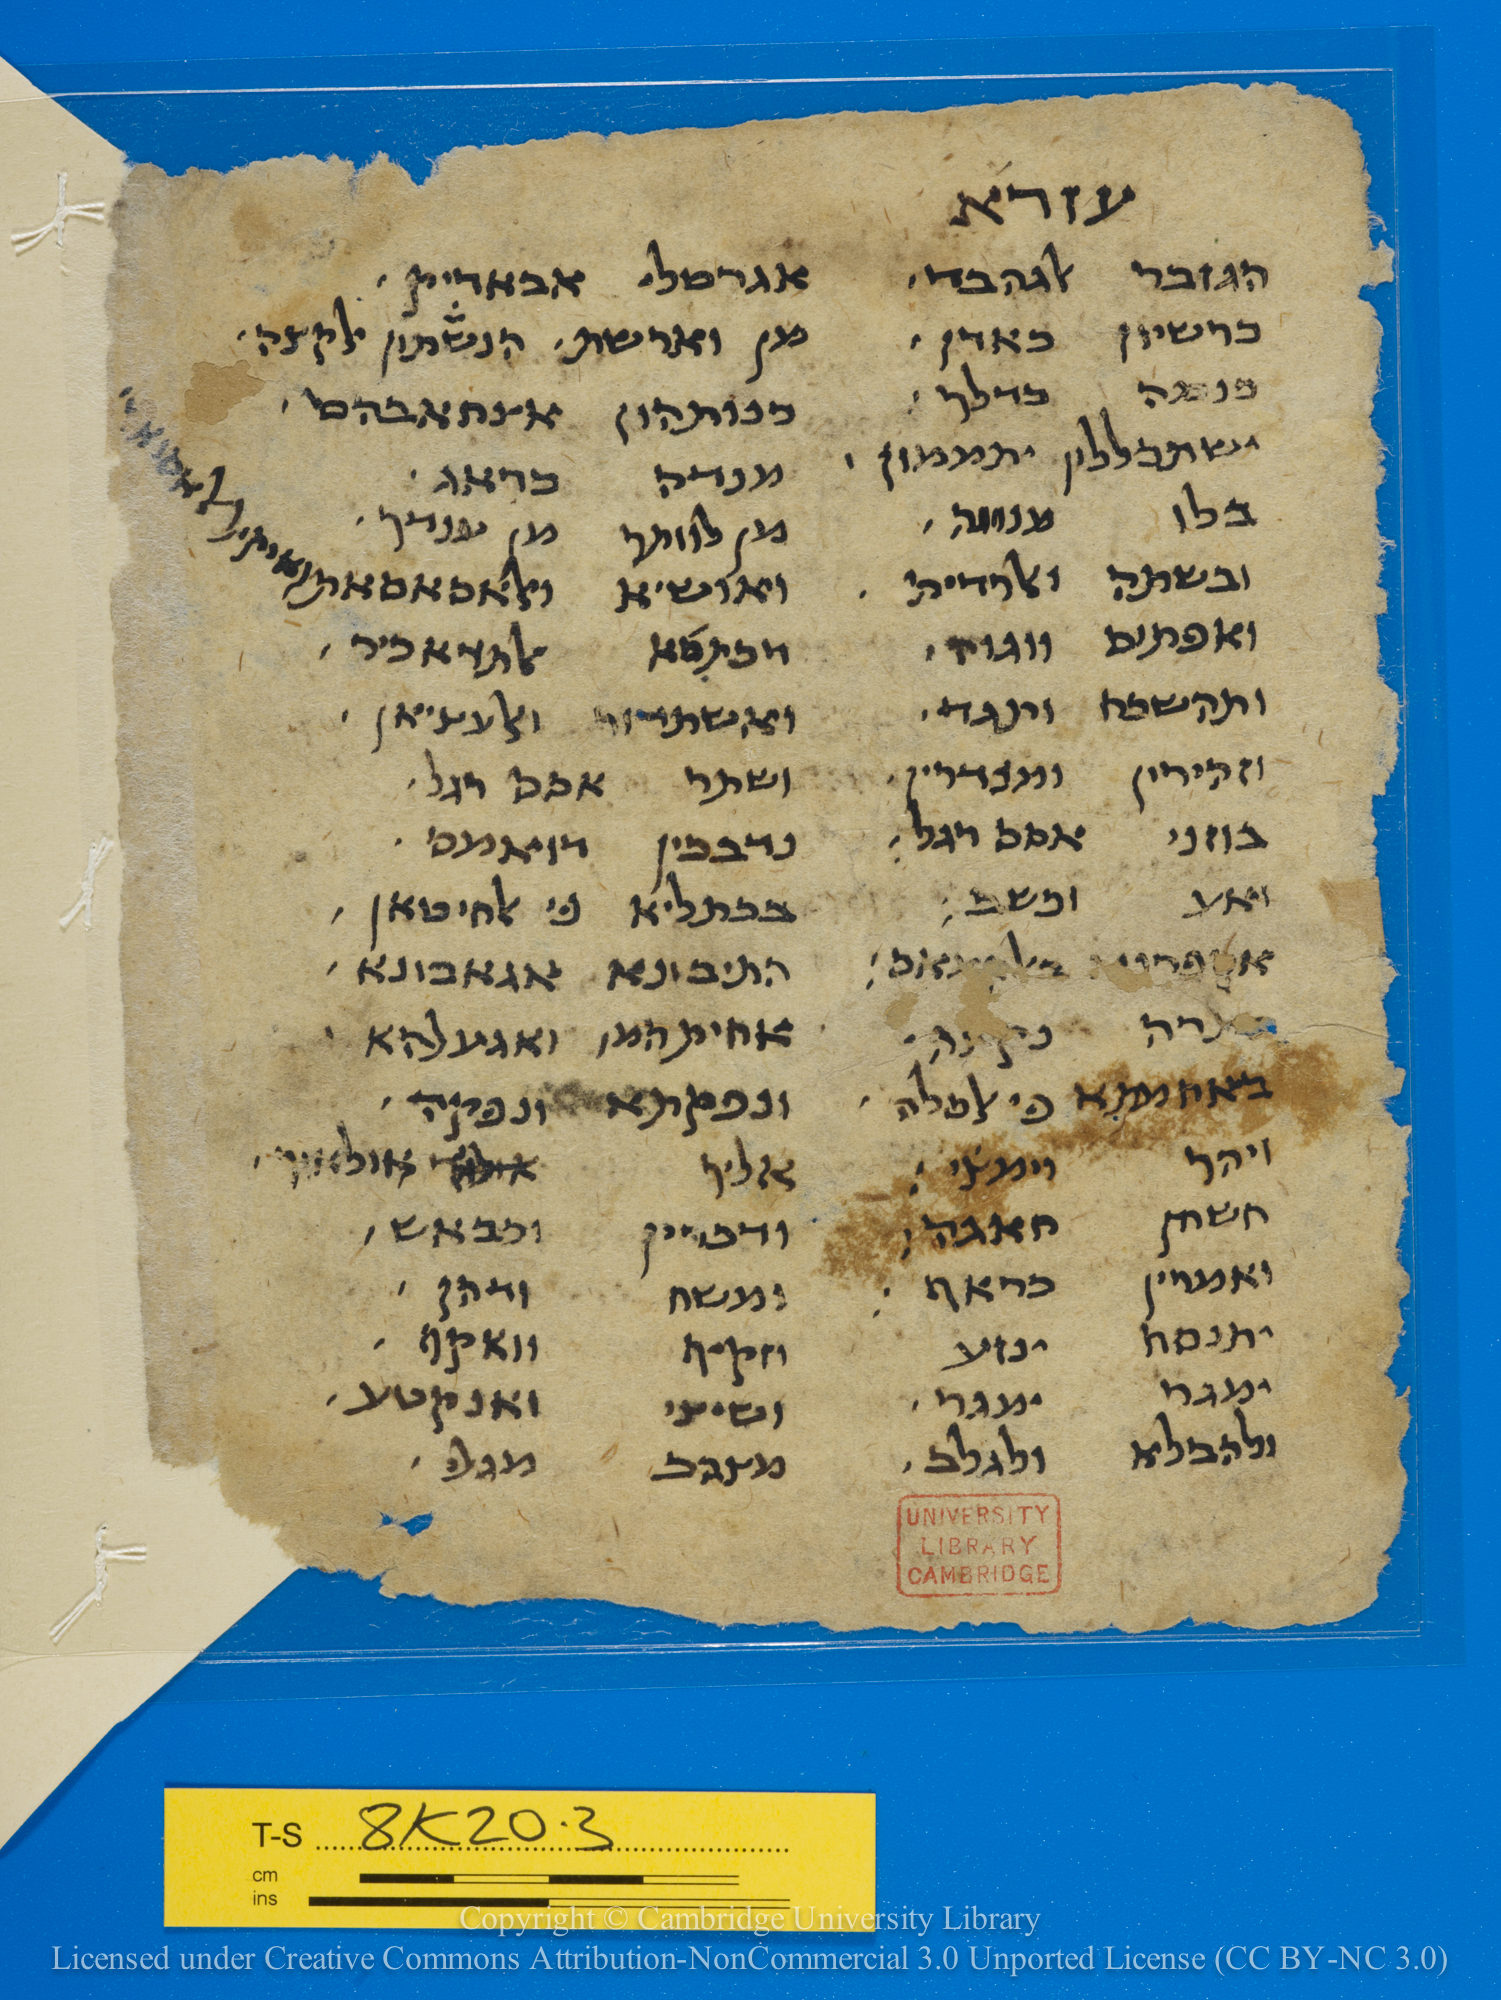 עזרא
הגזבר לגהבד׳ אגרטלי אבאריק׳
כרשיון כאדן׳ מן וארשת׳ הנשתון לקצה׳
כנמה כדלך׳ כנותהון אצחאבהם׳
ישתכללון יתממון׳ מנדה כראג׳
בלו מנווה׳ מן לוותך מן ענדך׳
ובשתה ולרדית׳ ואושיא ולאסאסאת
ואפתום ווגוה׳ לתדאכיר׳
ותהשכח ותגד׳ ואשתדור ולעציאן׳
וזהירין ומנדרין׳ ושתר אסם רגל׳
בוזני אסם רגל׳ נדבכין דואמס׳
ואע וכשב׳ בכתליא פי לחיטאן׳
התיבונא אגאבונא׳
אחיתהמו ואגעלהא׳
באחמתא פי לסלה׳ ונפקתא ונפקה׳
ויהך וימצי׳ אליך אולאיך׳
חשחן חאגה׳ ודכרין וכבאש׳
ואמרין כראף׳ ומשח ודהן׳
יתנסח ינזע וזקיף וואקף׳
ימגר ימגר׳ ושיצי ואנקטע׳
ולהבלא ולגלב׳ מצהב מגלי׳
UNIVERSITY
LIBRARY
CAMBRIDGE
T-S 8K20.3
cm
ins
Copyright © Cambridge University Library
Licensed under Creative Commons Attribution-NonCommercial 3.0 Unported License (CC BY-NC 3.0)